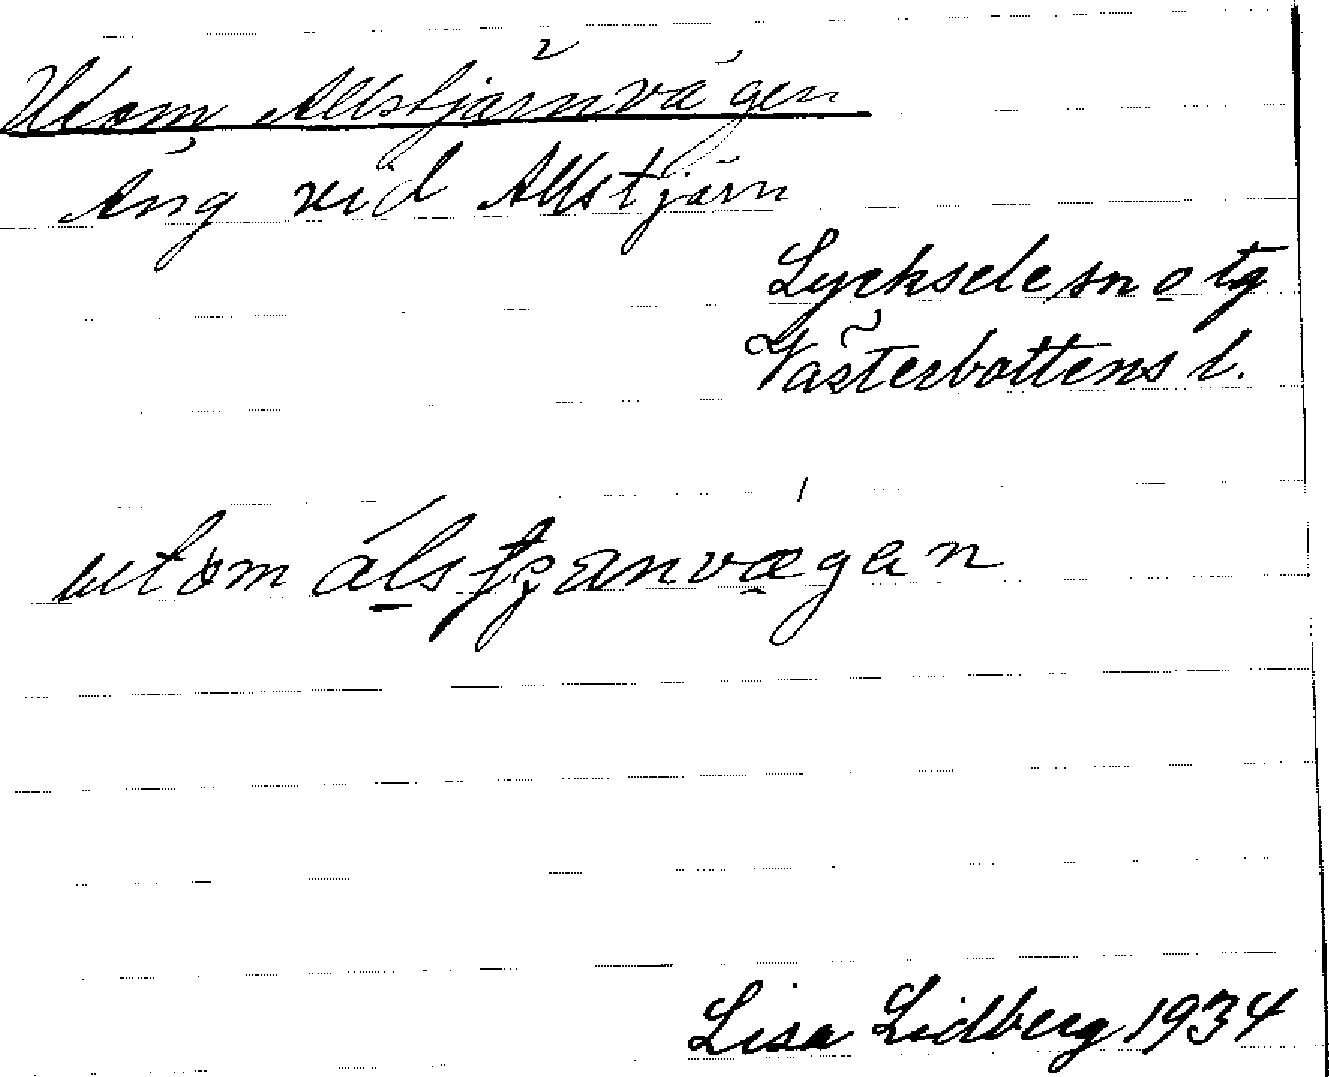 Utom Allstjärnvägen
Äng vid Allstjärn
Lycksele sn o tg
Västerbottens l.
utom
Lisa Lidberg 1934